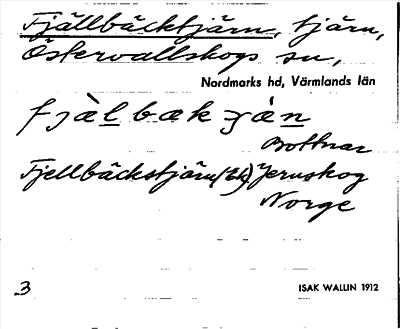 Fjällbäcktjärn, tjärn,
Östervallskogs sn,
Nordmarks hd, Värmlands län
fjὰlbækʒὰn
Bottnar
Fjellbäckstjärn Jernskog
Norge
3 ISAK WALLIN 1912